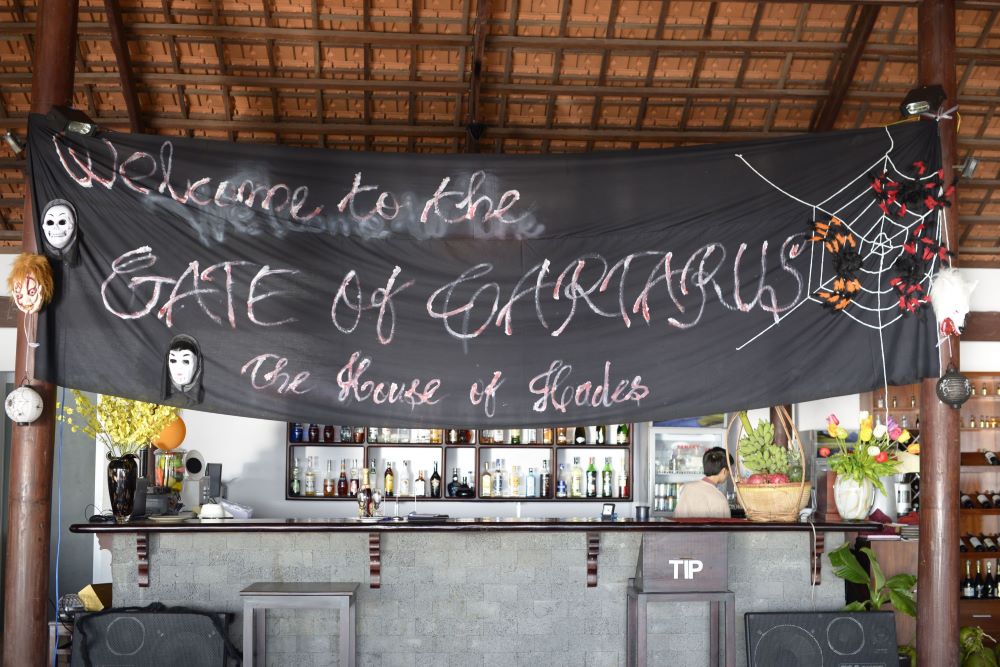 Welcome to the
GATE of TARTARUS
The House of Hades
TIP